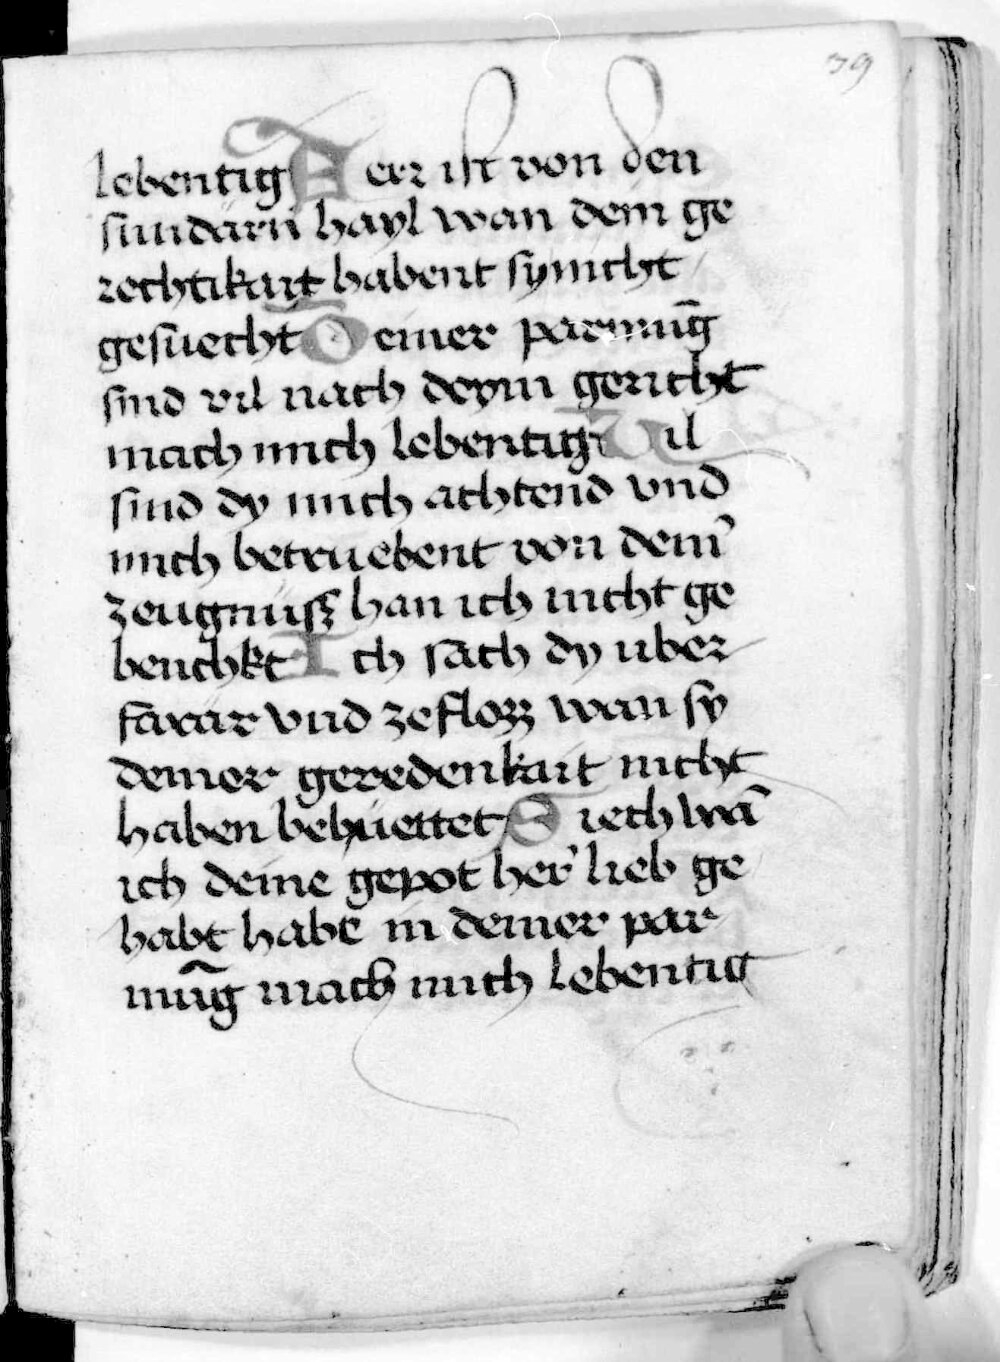 79
lebentig Ferr ist von den
sundarn hayl wan dein ge
rechtikait habent sy nicht
gesuecht Deiner parmūg
sind vil nach deym gericht
mach mich lebentig Vil
sind dy mich achtend vnd
mich betruebent von dein̄
zeugnuss han ich nicht ge
benchkt Ich sach dy uber
farār vnd zefloss wan sy
deiner geredenkait nicht
haben behuettet Siech wā
ich deine gepot her̄ lieb ge
habt habe in deiner par
mūg mach mich lebentig